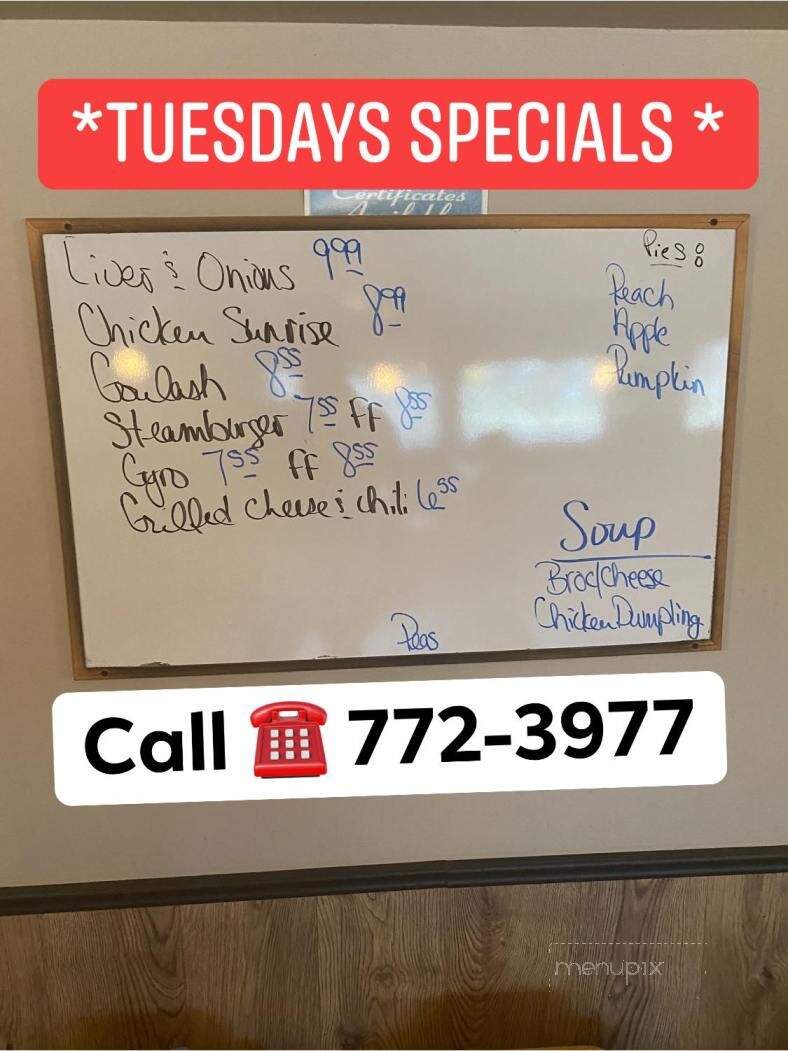 *TUESDAYS SPECIALS *
Certificates
Available
Liver & Onions 9.99
Chicken Sunrise 8.99
Goulash 8.55
Steamburger 7.55 FF 8.55
Gyro 7.55 FF 8.55
Grilled Cheese & Chili 6.55
Pies:
Peach
Apple
Pumpkin
Soup
Broc/Cheese
Chicken Dumpling
Peas
Call ☎️ 772-3977
menupix